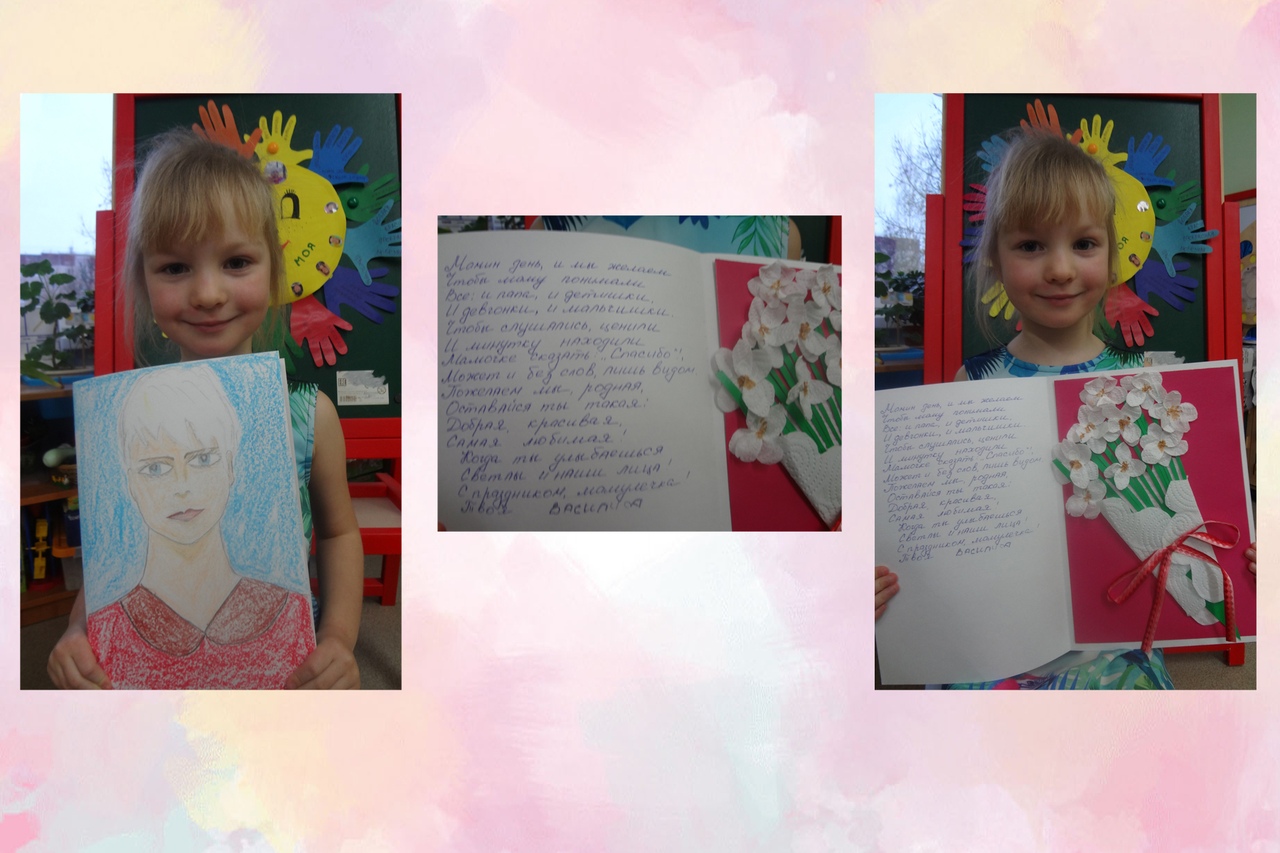 МОЯ
Мамин день, и мы желаем
Чтобы маму понимали
Все: и папа, и детишки,
И девчонки, и мальчишки.
Чтобы слушались, ценили
И минутку находили
Мамочке сказать „Спасибо",
Может и без слов, лишь видом
Пожелаем мы, родная,
Оставайся ты такая:
Добрая, красивая,
Самая любимая!
Когда ты улыбаешься
Светлы и наши лица!
С праздником, мамулечка!
Твоя ВАСИЛИСА
Мамин день, и мы желаем
Чтобы маму понимали
Все: и папа, и детишки,
И девчонки, и мальчишки.
Чтобы слушались, ценили
И минутку находили
Мамочке сказать „Спасибо",
Может и без слов, лишь видом
Пожелаем мы, родная,
Оставайся ты такая:
Добрая, красивая,
Самая любимая!
Когда ты улыбаешься
Светлы и наши лица!
С праздником, мамулечка!
Твоя ВАСИЛИСА